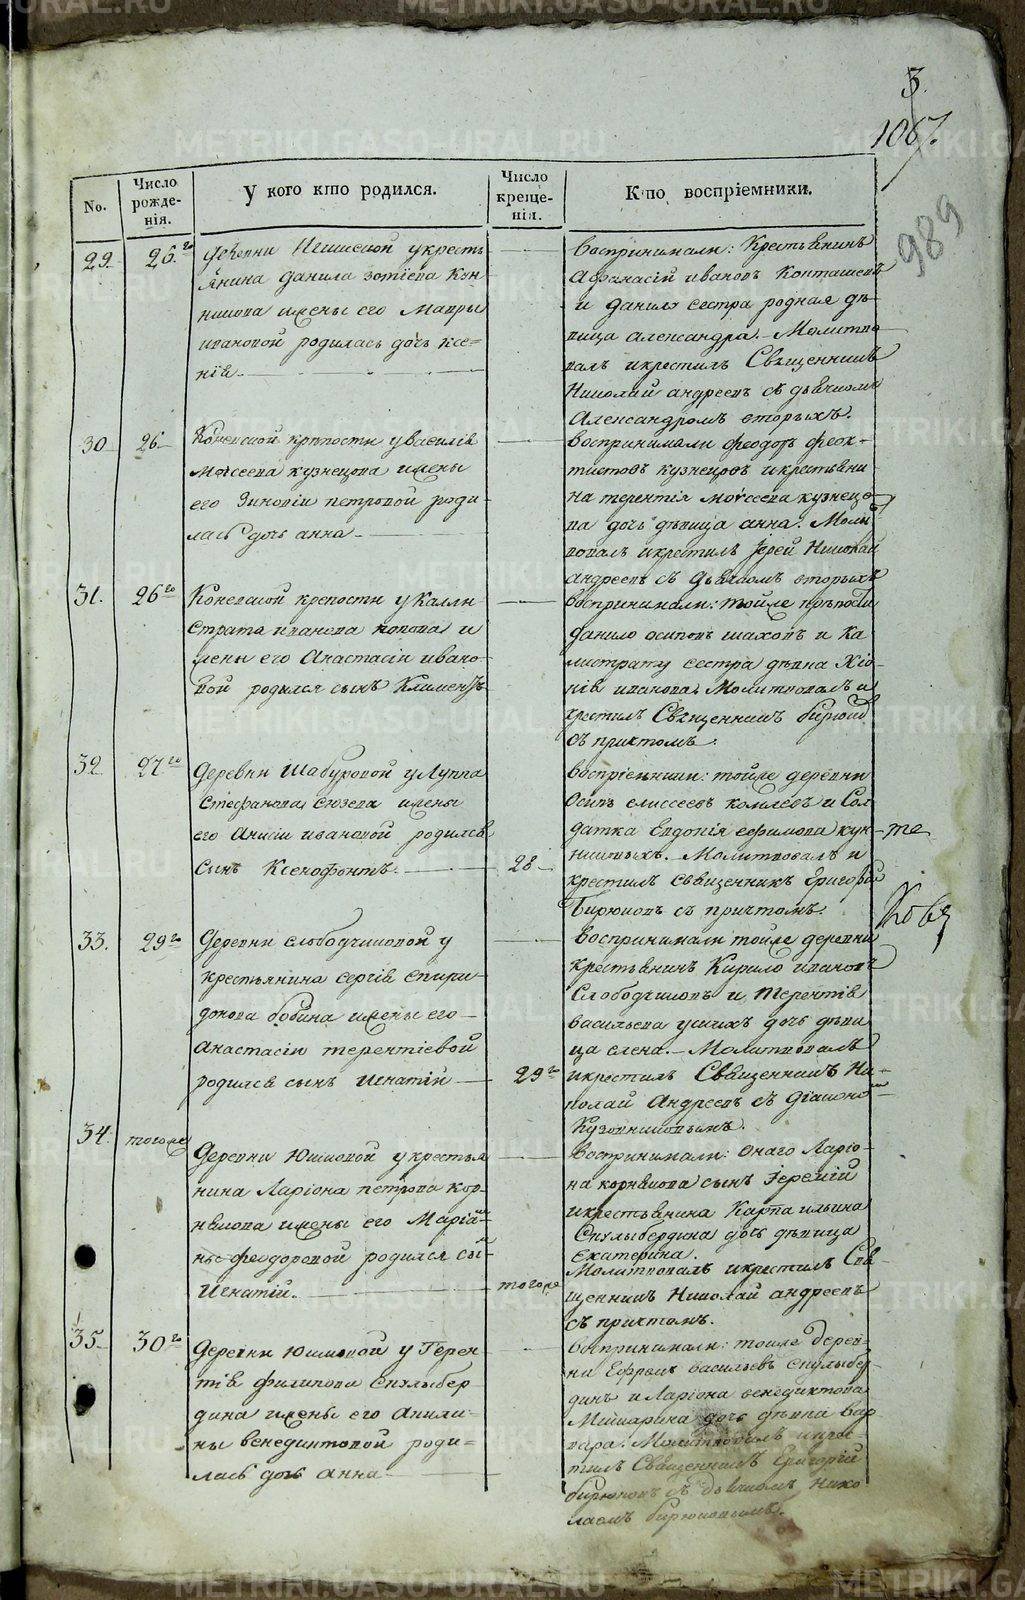 3.
1067.
989
No.
Число рожде-нія.
У кого кто родился.
Число креще-нія.
Кто воспріемники.
29.
26.го
Деревни укресть
янина данила зотіева Кон
шюва жены его Мавры
ивановой родилась дочь ксе=
нія.
воспринимали: Крестьянинъ
Афанасій ивановъ
и данила сестра родная дѣ
вица александра. Молитво
валъ икрестилъ Священникъ
Николай андреевъ съ дьячкомъ
Александромъ вторыхъ.
30
26.
Коневской крѣпости увасилія
Моѵсеева кузнецова жены
его Зиновіи петровой роди
лась дочь анна
воспринимали феодоръ феок-
тистовъ кузнецовъ икрестьяни
на терентія моѵсеева кузнецо
ва дочь дѣвица анна. Молит
вовалъ икрестилъ Іерей Николай
андреевъ съ дьячкомъ вторыхъ
31.
26го
Коневской крепости уКалли
страта иванова попова и
жены его Анастасіи ивано-
вой родился сынъ Климентъ
воспринимали: тойже крѣпости
данило осиповъ шаховъ и Ка
листрату сестра дѣвка Хіо-
нія иванова. Молитвовалъ и
крестилъ Священникъ бирюковъ
съ притомъ.
32
27го
Деревни Шабуровой уЛуппа
Стефанова сюзева жены
его Анисіи ивановой родился
сынъ Ксенофонтъ.
28
воспріемники: тойже деревни
Осипъ елиссеевъ комлевъ и Сол
датка Евдокія ефимова кун-
Молитвовалъ и
крестилъ священникъ Григорій
Бирюковъ съ причтомъ.
те
33.
29го
Деревни слободчиковой у
крестьянина сергія спири
донова бобина жены его
Анастасіи терентіевой
родился сынъ Игнатій
29го
воспринимали тойже деревни
крестьянинъ Кирило ивановъ
Слободчиковъ и Терентія
васильева дочь дѣви
ца елена. Молитвовалъ
икрестилъ Священникъ Ни-
колай Андреевъ съ діакономъ
Кузовниковымъ.
34.
тогоже
Деревни Юшковой укрестья
нина Ларіона петрова кор-
нилова жены его Маріа-
ны феодоровой родился сы
Игнатій.
тогоже
воспринимали: онаго Ларіо-
на корнилова сынъ Іеремій
икрестьянина Карпа ильина
Скулыбердина дочь дѣвица
Екатерина.
Молитвовалъ икрестилъ Свя-
щенникъ Николай андреевъ
съ притомъ.
35
30го
Деревни Юшковой у Терен
тія филипова Скулыбер
дина жены его Акили-
ны венедиктовой роди-
лась дочь анна
воспринимали: тойже дерев-
ни Ефремъ васильевъ скулыбер-
динъ и Ларіона венедиктова
Мишарина дочь дѣвка вар
вара. Молитвовалъ икрес-
тилъ Священникъ Григорій
бирюковъ съ дьячкомъ Нико
лаемъ бирюковымъ.
METRIKI.GASO-URAL.RU